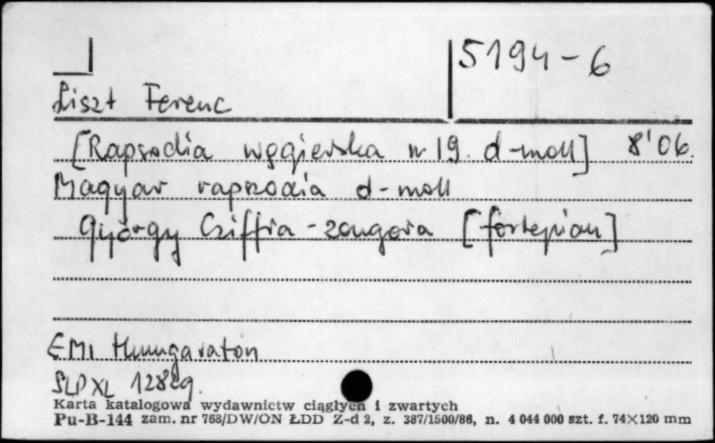 5194-6
Liszt Ferenc
[Rapsodia węgierska nr 19. d-moll] 8'06.
Magyar rapszodia d-moll
György Cziffra - zongora [fortepian]
EMI Hungaraton
SLPXL
Karta katalogowa wydawnictw ciągłych i zwartych
Pu-B-144 zam. nr 768/DW/ON ŁDD Z-d 2, z. 387/1500/86, n. 4 044 000 szt. f. 74×120 mm